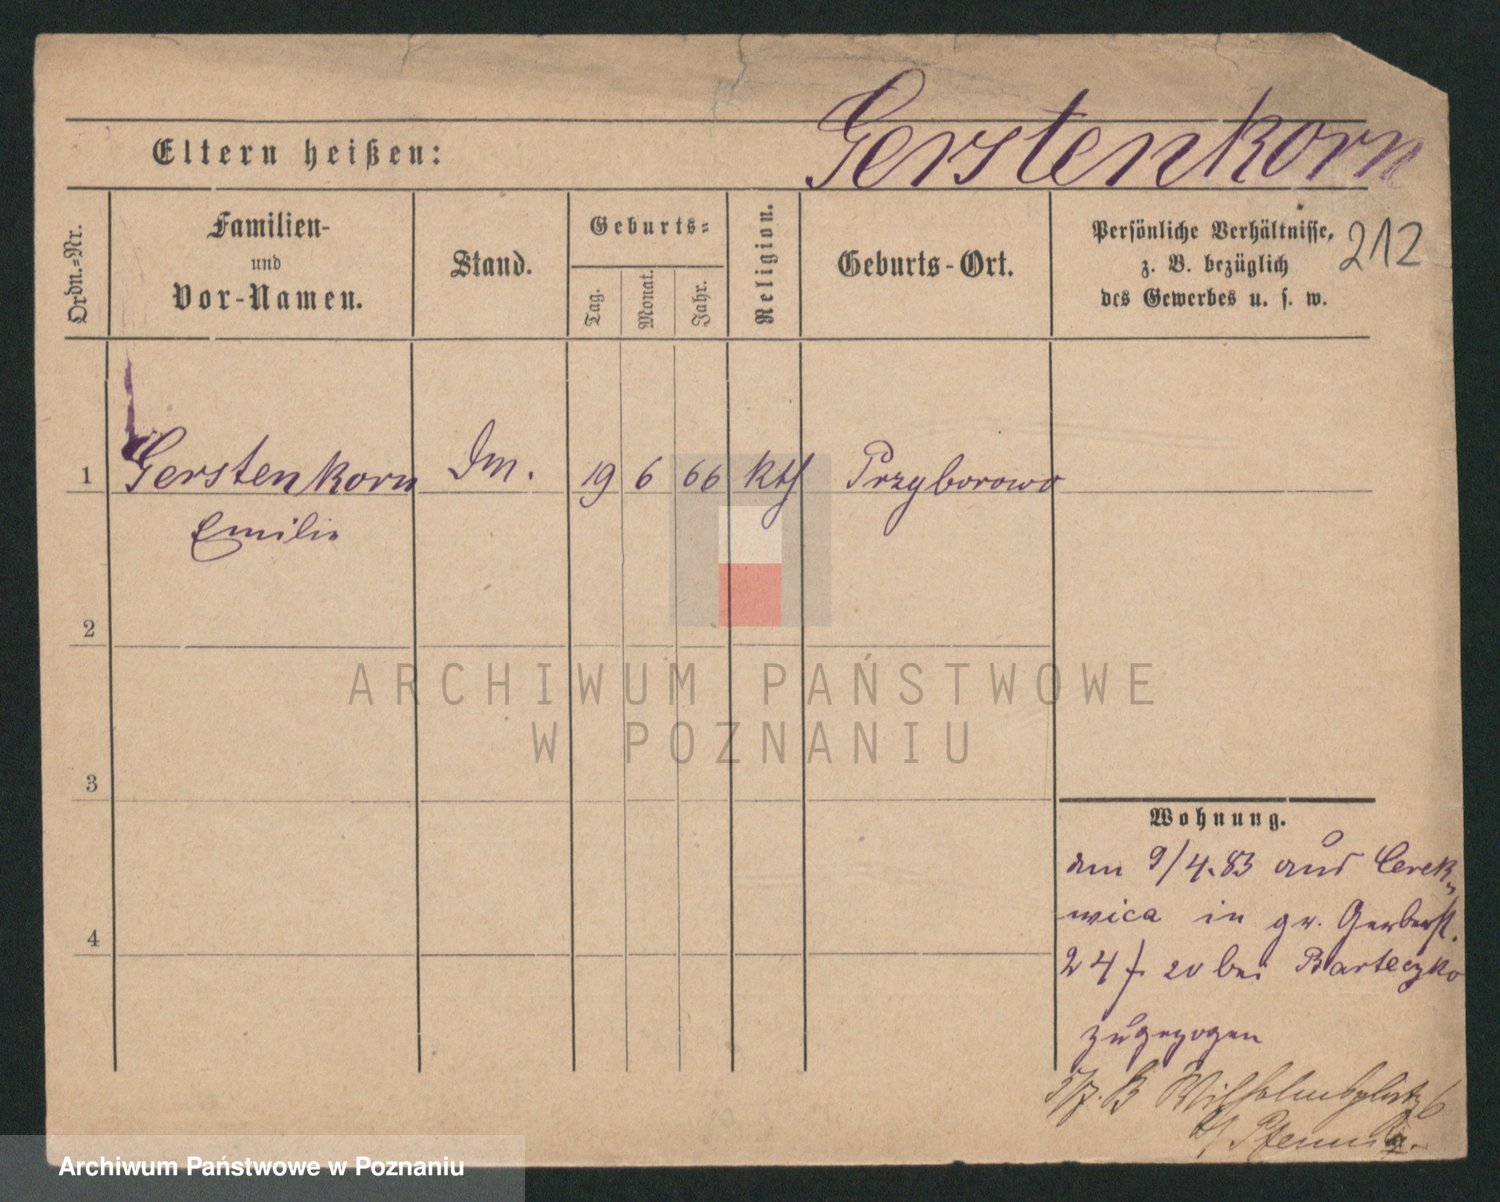 Gerstenkorn
Eltern heißen:
Ordn.-Nr.
Familien-
und
Vor-Namen.
Stand.
Geburts-
Tag.
Monat.
Jahr.
Religion.
Geburts-Ort.
Persönliche Verhältnisse,
z. B. bezüglich
des Gewerbes u. s. w.
212
1 Gerstenkorn Dm. 19 6 66 kth Przyborowo
Emilie
2
3
4
ARCHIWUM PAŃSTWOWE
W POZNANIU
Wohnung.
am 9/4.83 aus Cerek-
wica in gr. Gerberst.
24 bei Barteczko
zugezogen
5/7. Wilhelmsplatz 6
Archiwum Państwowe w Poznaniu